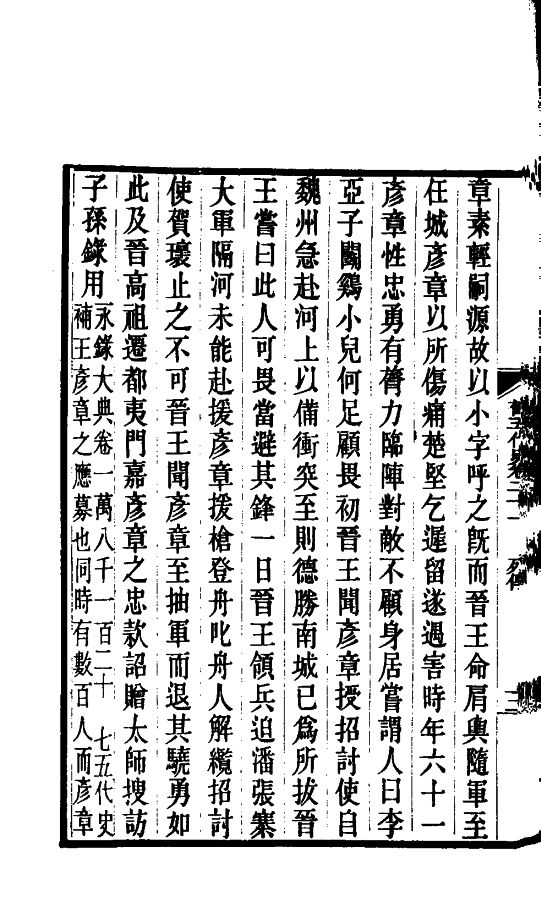 章素輕嗣源故以小字呼之旣而晉王命肩輿隨軍至
任城彥章以所傷痛楚堅乞遲留遂遇害時年六十一
彥章性忠勇有膂力臨陣對敵不顧身居嘗謂人曰李
亞子鬬鷄小兒何足顧畏初晉王聞彥章授招討使自
魏州急赴河上以備衝突至則德勝南城已爲所拔晉
王嘗曰此人可畏當避其鋒一日晉王領兵迫潘張寨
大軍隔河未能赴援彥章援槍登舟叱舟人解纜招討
使賀瓌止之不可晉王聞彥章至抽軍而退其驍勇如
此及晉高祖遷都夷門嘉彥章之忠款詔贈太師搜訪
子孫錄用
永錄大典卷一萬八千一百二十 七五代史
補王彥章之應募也同時有數百人而彥章